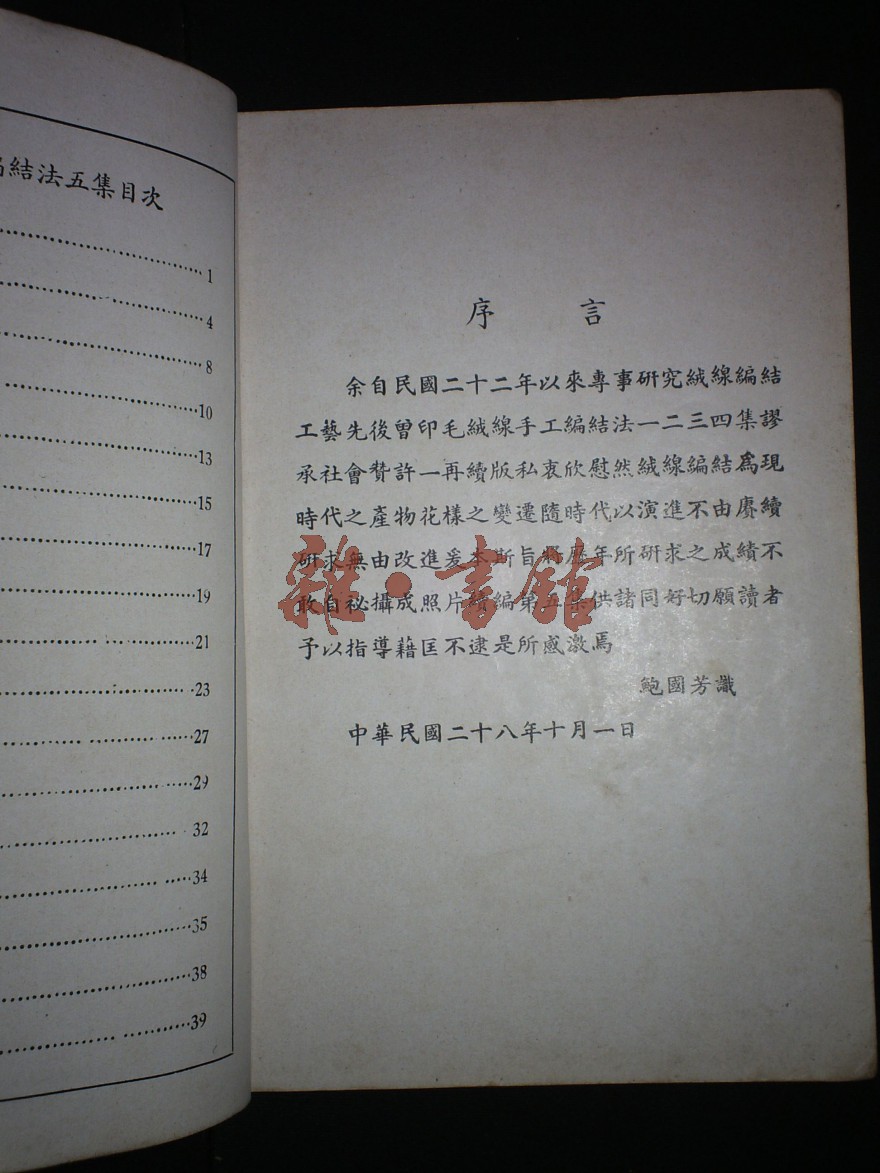 結法五集目次
1
4
8
10
13
15
17
19
21
23
27
29
32
34
35
38
39
序 言
余自民國二十二年以來專事研究絨線編結
工藝先後曾印毛絨線手工編結法一二三四集謬
承社會贊許一再續版私衷欣慰然絨線編結爲現
時代之產物花樣之變遷隨時代以演進不由賡續
研求無由改進爰本斯旨將歷年所研求之成績不
敢自祕攝成照片續編第五集供諸同好切願讀者
予以指導藉匡不逮是所感激焉
鮑國芳識
中華民國二十八年十月一日
雜·書館